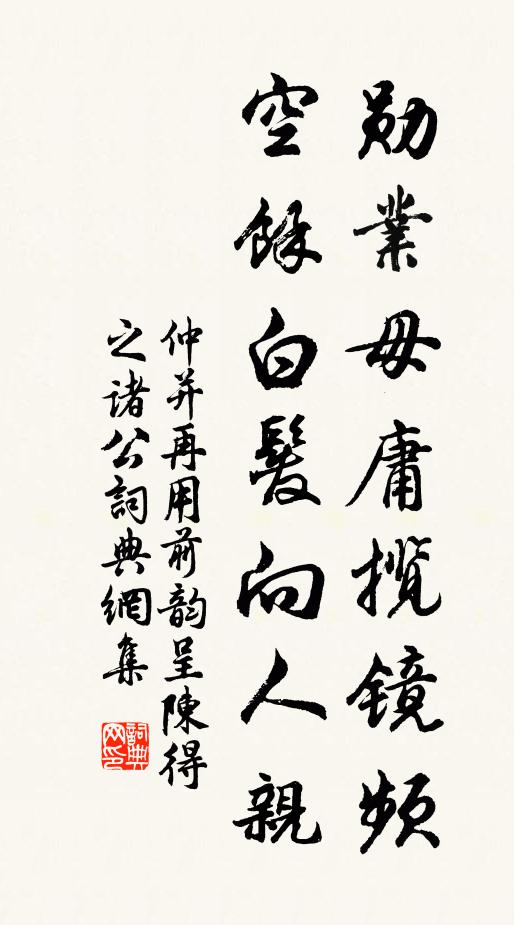 勋業毋庸揽镜頻
空餘白髮向人親
仲并再用前韵呈陳得
之诸公詞典網集
詞典
网印